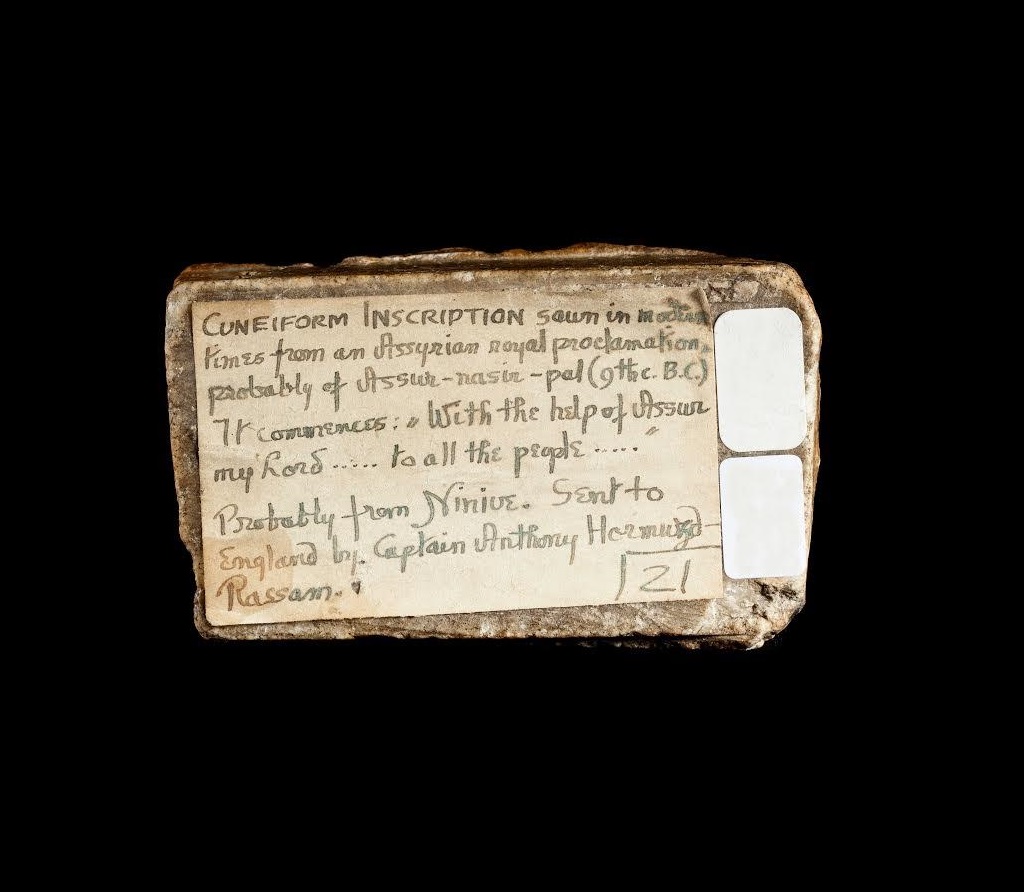 CUNEIFORM INSCRIPTION sawn in modern
times from an Assyrian royal proclamation,
probably of Assur-nasir-pal (9th c. B.C.)
It commences: „With the help of Assur
my Lord ..... to all the people ....."
Probably from Ninive. Sent to
England by. Captain Anthony Hormuzd
Rassam.
21